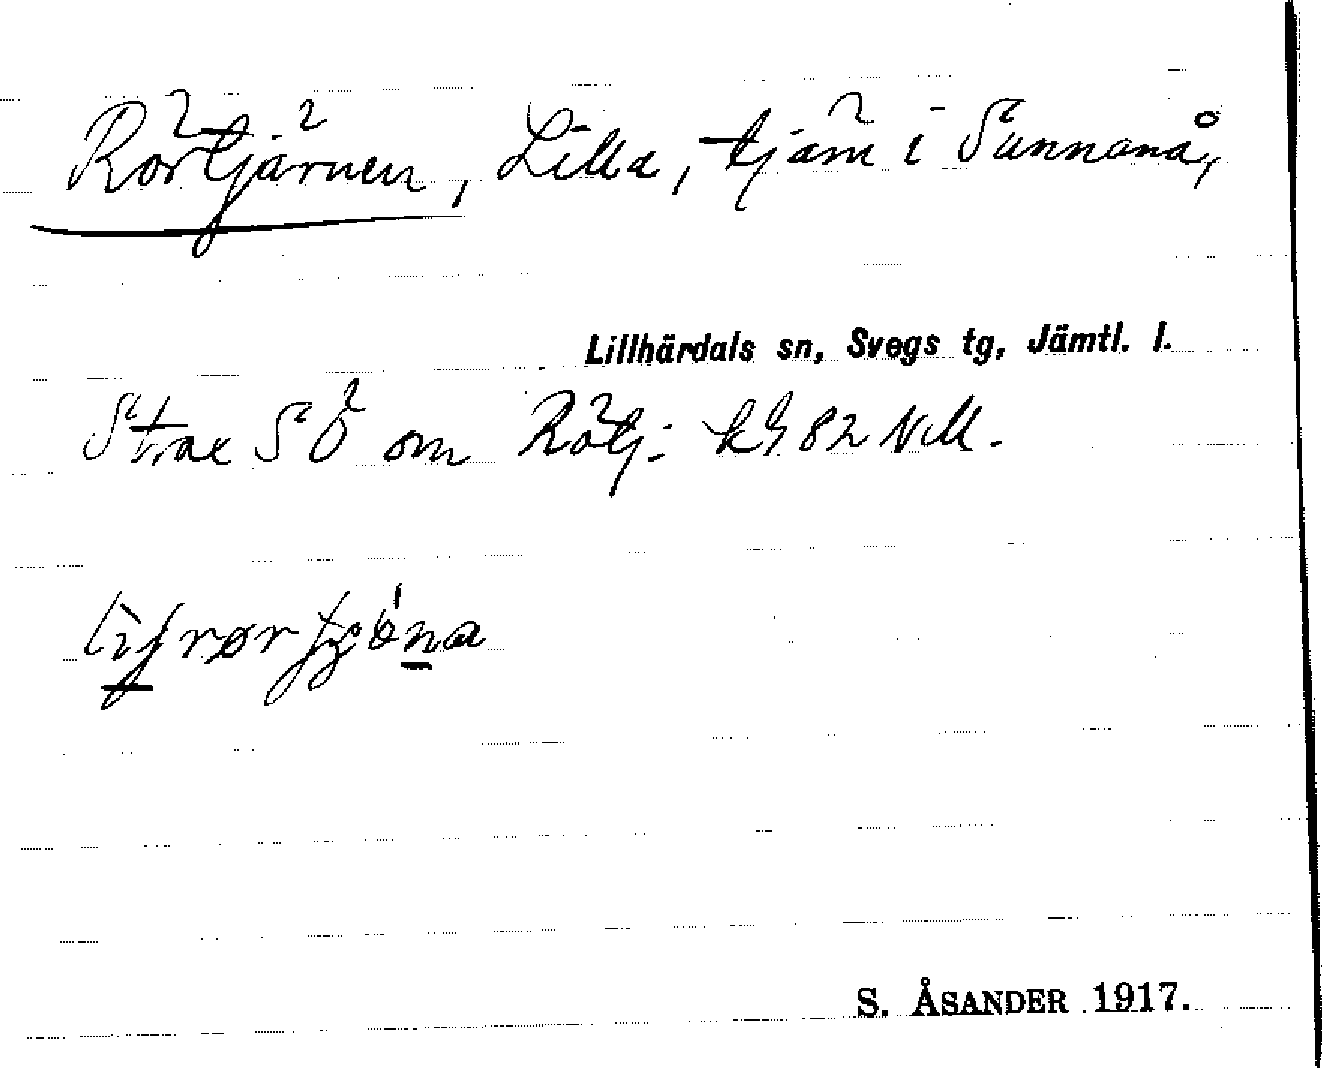 Rörtjärnen, Lilla, tjärn i Sunnanå,
Lillhärdals sn, Svegs tg, Jämtl. l.
Strax SÖ om Rötj: kg 82 NM.
S. ÅSANDER 1917.